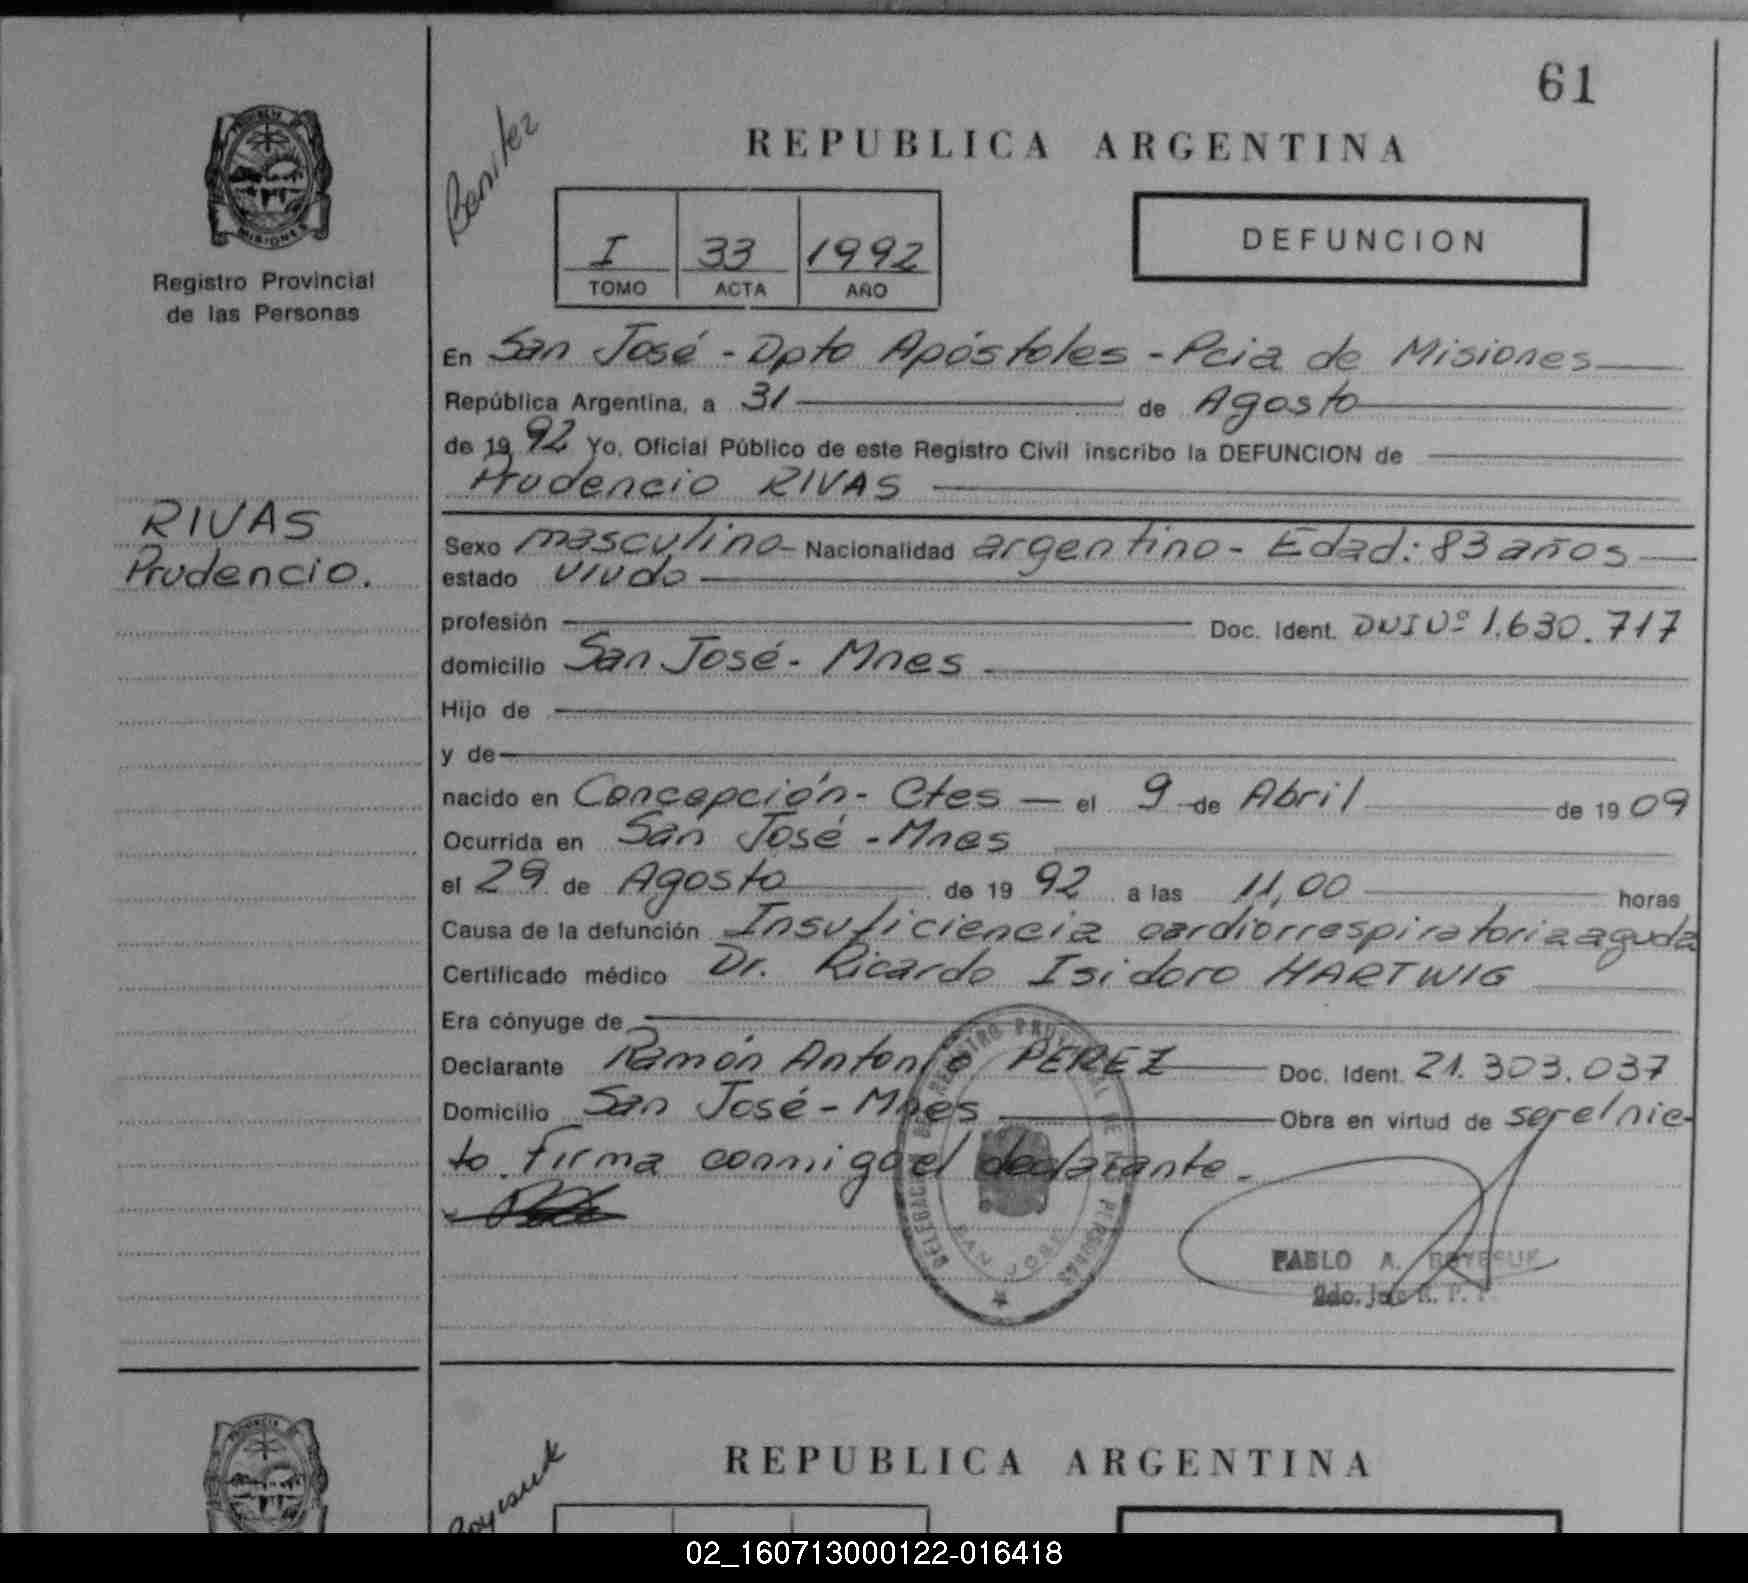 61
Benitez
REPUBLICA ARGENTINA
PROVINCIA DE
MISIONES
Registro Provincial
de las Personas
I 33 1992
TOMO ACTA AÑO
DEFUNCION
En San José - Dpto Apóstoles - Pcia de Misiones
República Argentina, a 31 de Agosto
de 1992 Yo, Oficial Público de este Registro Civil inscribo la DEFUNCION de
Prudencio RIVAS
RIVAS
Prudencio.
Sexo masculino - Nacionalidad argentino - Edad: 83 años
estado viudo
profesión Doc. Ident. DNI Nº 1.630.717
domicilio San José - Mnes
Hijo de
y de
nacido en Concepción - Ctes - el 9 de Abril de 1909
Ocurrida en San José - Mnes
el 29 de Agosto de 1992 a las 11,00 horas
Causa de la defunción Insuficiencia cardiorrespiratoria aguda
Certificado médico Dr. Ricardo Isidoro HARTWIG
Era cónyuge de
Declarante Ramón Antonio PEREZ Doc. Ident. 21.303.037
Domicilio San José - Mnes Obra en virtud de ser el nie-
to. Firma conmigo el declarante.
SAN JOSE
PABLO A. BOYESUK
REPUBLICA ARGENTINA
Boyesuk
02_160713000122-016418